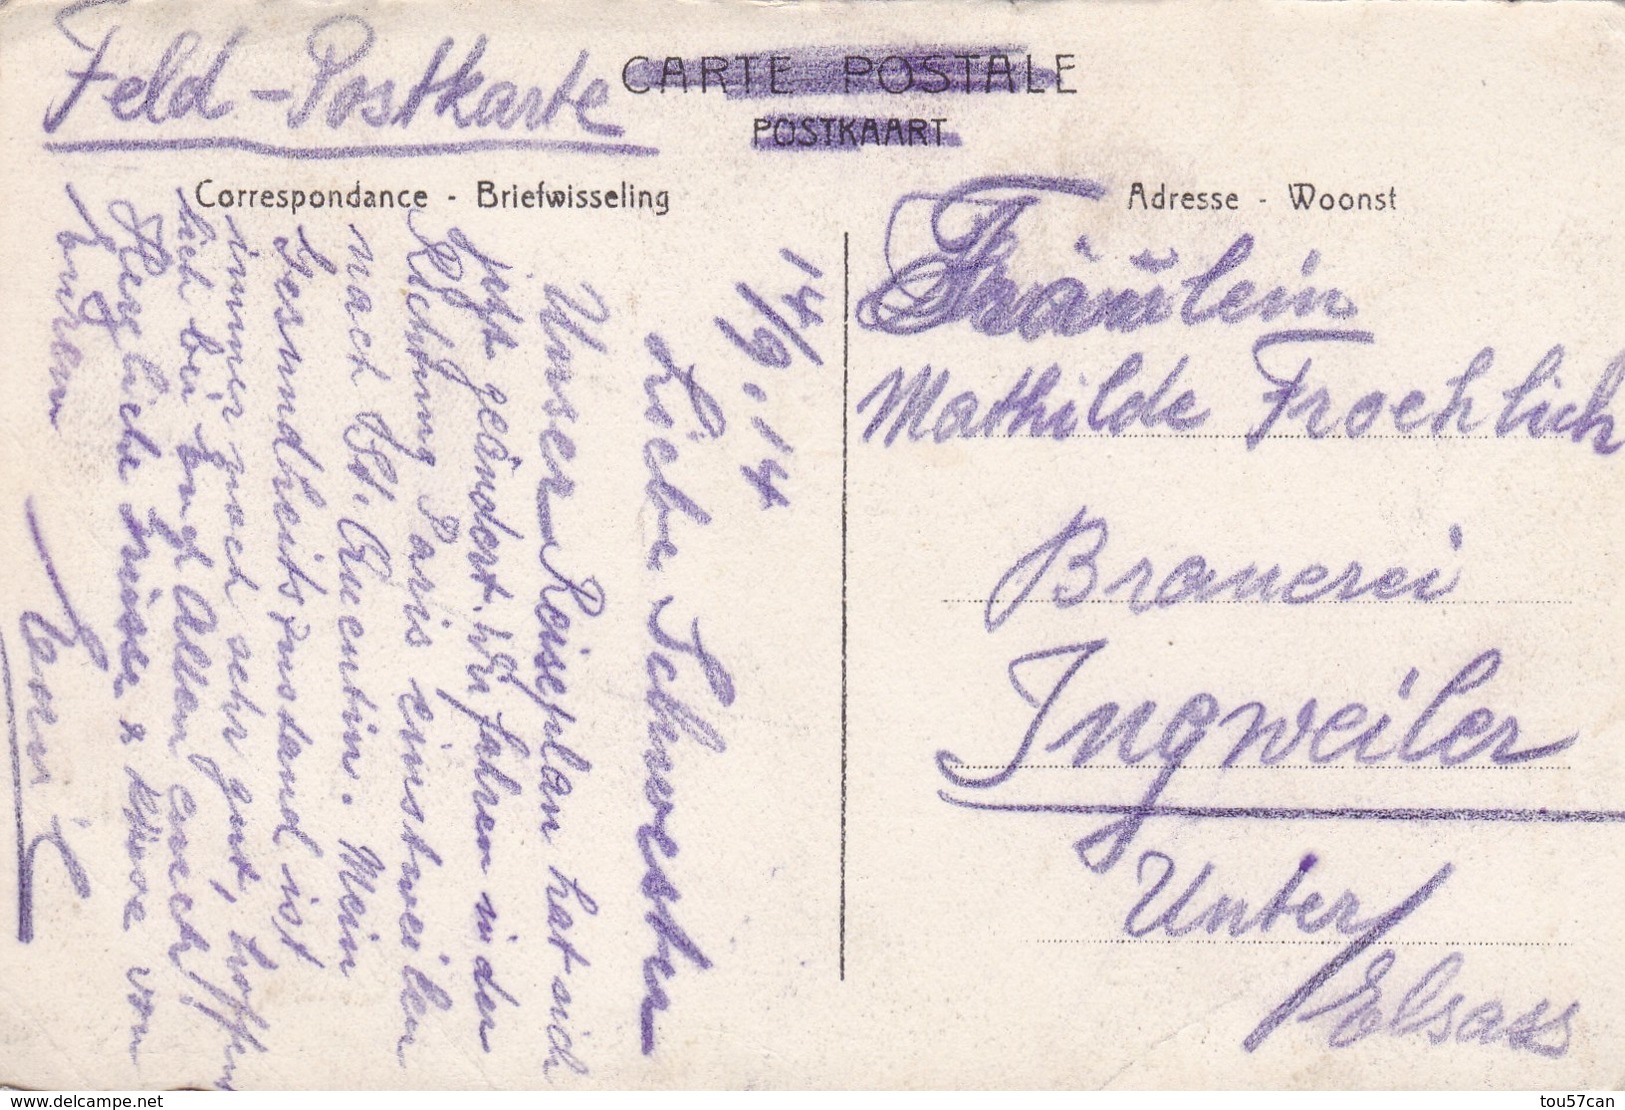 Feld-Postkarte
CARTE POSTALE
POSTKAART
Correspondance - Briefwisseling
Adresse - Woonst
14/9.14
Liebe Schwester
Unser Reiseplan hat sich
jetzt geändert. Wir fahren in der
Richtung Paris einstweilen
nach St. Quentin. Mein
Gesundheitszustand ist
immer noch sehr gut, hoffen
lich bei Euch Allen auch!
Herzliche Grüsse & Küsse von
Eurem
Fräulein
Mathilde Froehlich
Brauerei
Ingweiler
Unter/
Elsass
www.delcampe.net
tou57can